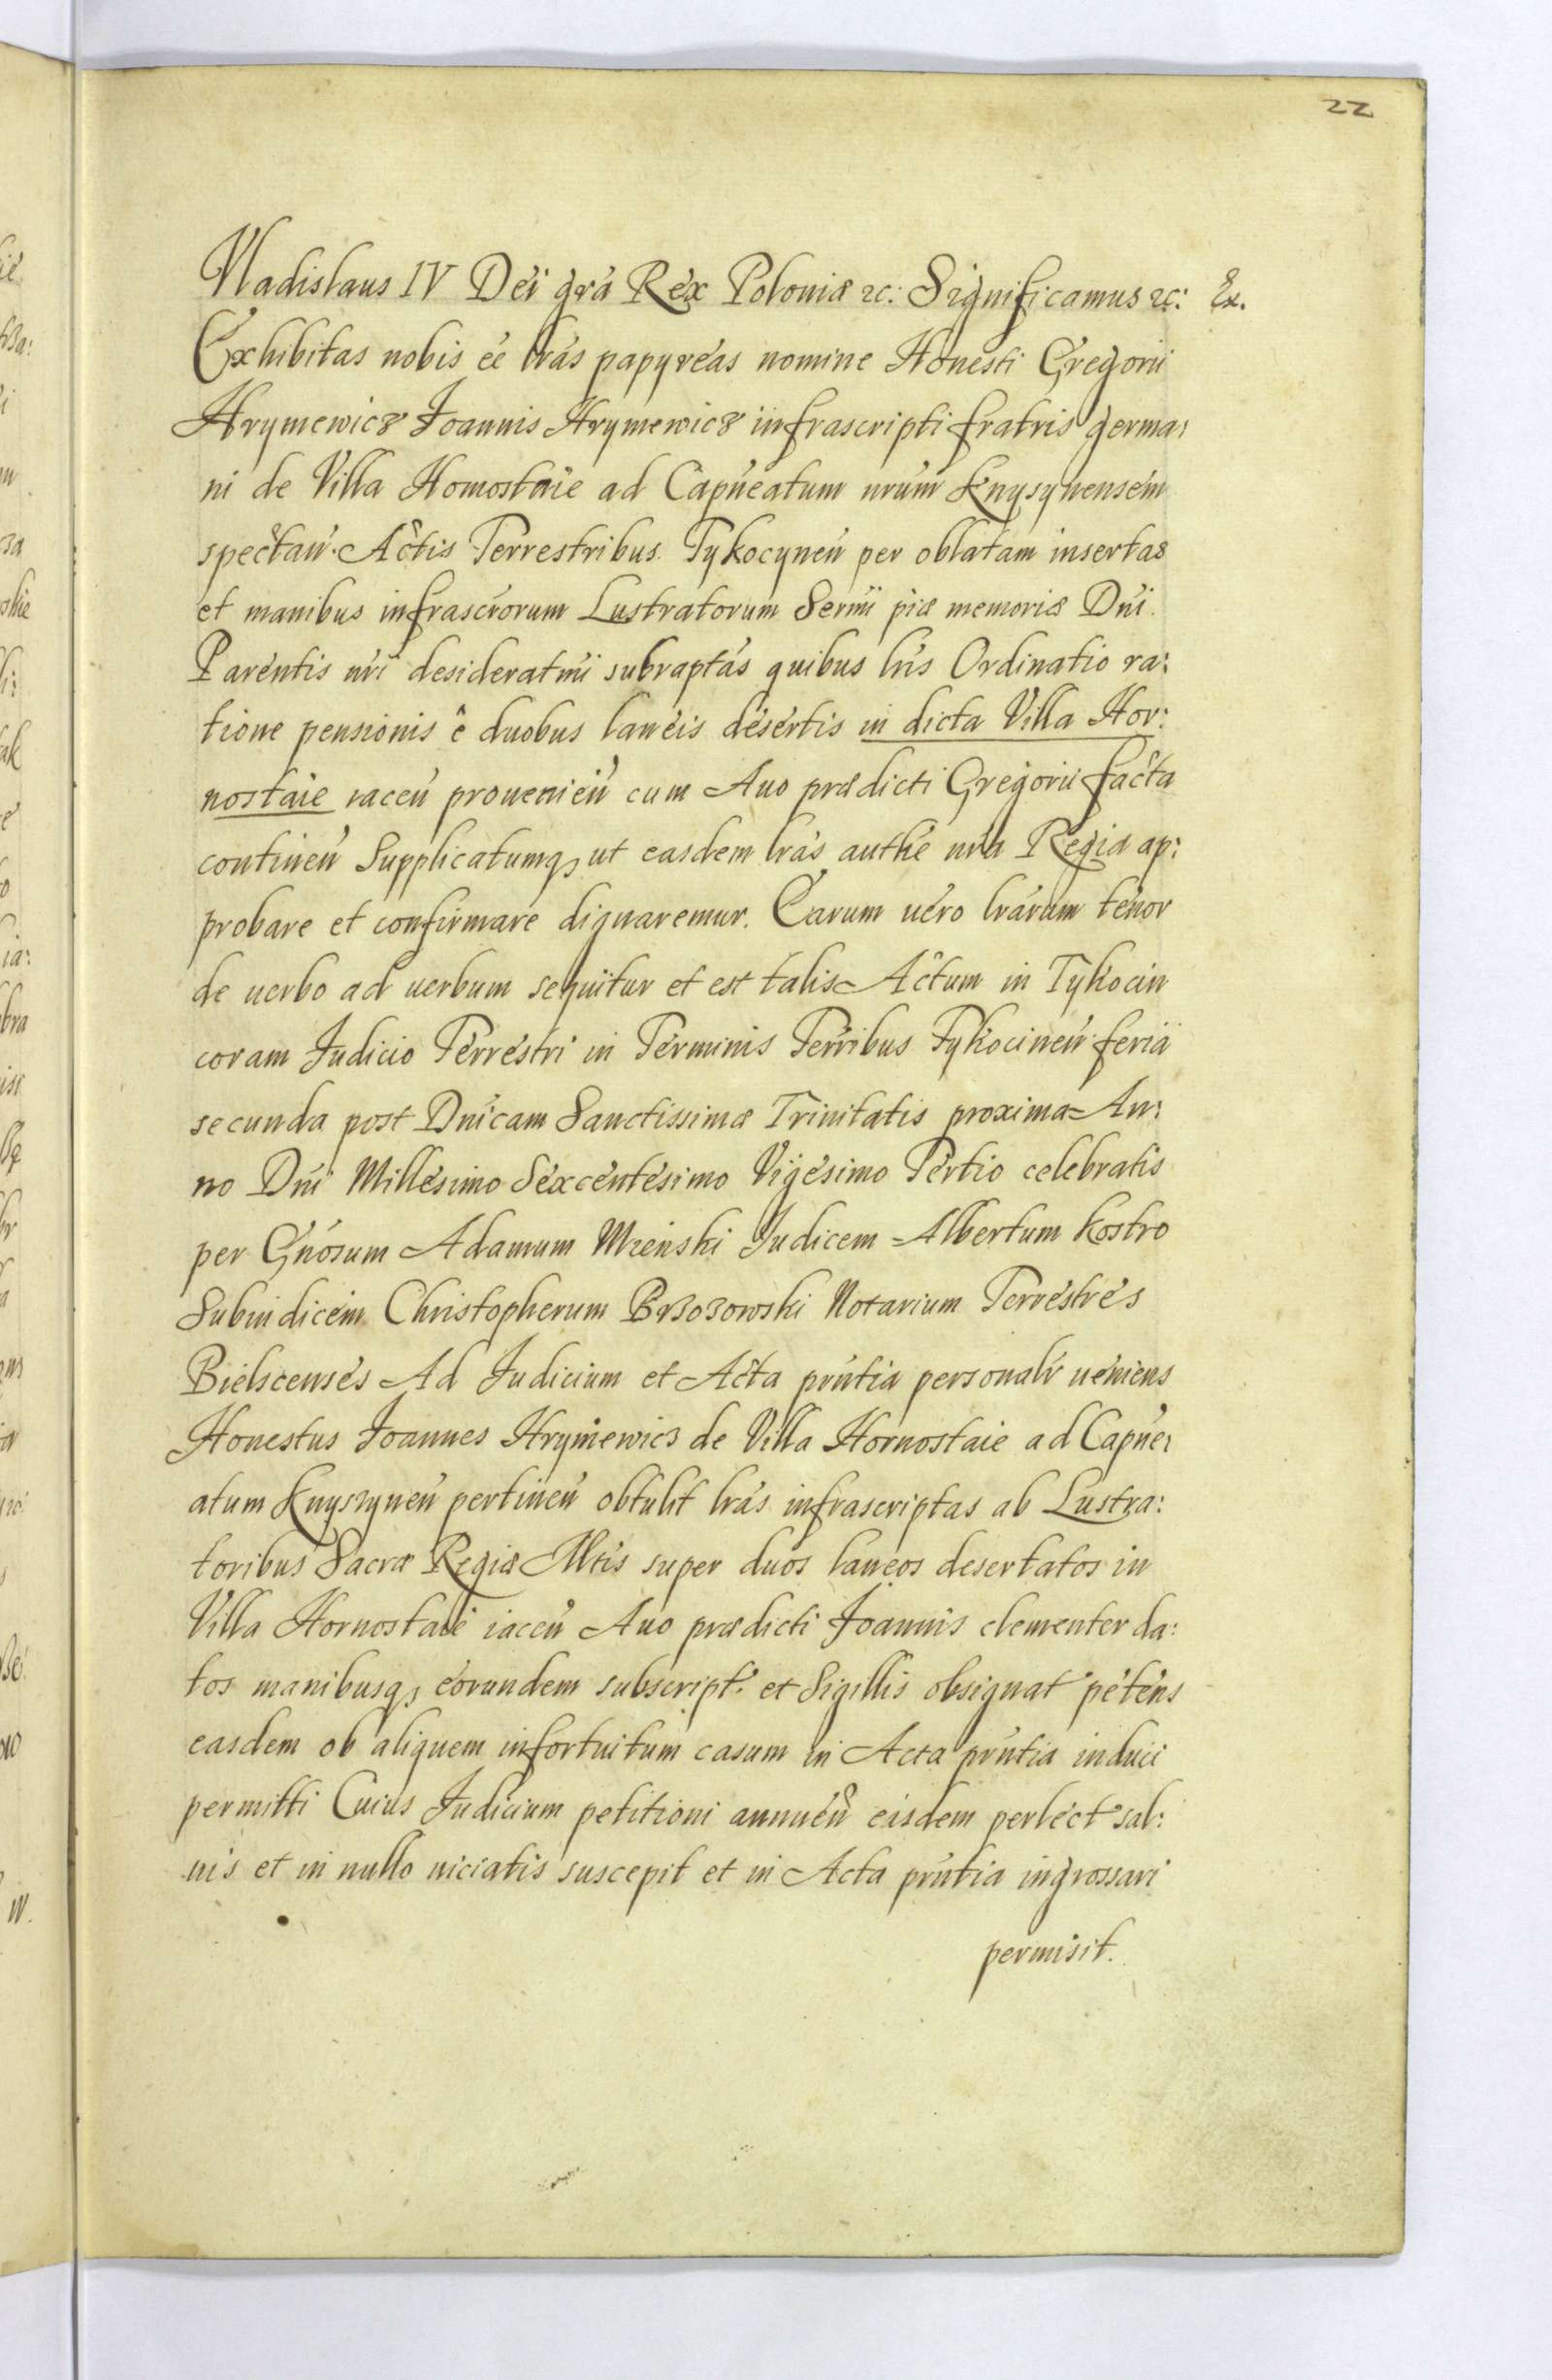 22
Vladislaus IV Dei gra Rex Poloniæ &c: Significamus &c: Ex.
Exhibitas nobis ee lras papyreas nomine Honesti Gregorii
Hrymewicz Joannis Hrymewicz infrascripti fratris germa:
ni de Villa Homostaie ad Capneatum nrum Knysynensem
spectan. Actis Terrestribus Tykocynen per oblatam insertas
et manibus infrascrorum Lustratorum Sermi piæ memoriæ Dni.
Parentis nri desideratmi subraptas quibus lris Ordinatio ra:
tione pensionis ê duobus laneis desertis in dicta Villa Hor:
nostaie iacen prouenien cum Auo prædicti Gregorii facta
continen Supplicatumq, ut easdem lras authe nra Regia ap:
probare et confirmare dignaremur. Earum uero lrarum tenor
de uerbo ad uerbum sequitur et est talis Actum in Tykocin
coram Judicio Terrestri in Terminis Terribus Tykocinen feria
secunda post Dnicam Sanctissimæ Trinitatis proxima An:
no Dni Millesimo Sexcentesimo Vigesimo Tertio celebratis
per Gnosum Adamum Mienski Judicem Albertum Kostro
Subiudicem Christopherum Brzozowski Notarium Terrestres
Bielscenses Ad Judicium et Acta prntia personalr ueniens
Honestus Joannes Hrymewicz de Villa Hornostaie ad Capne:
atum Knyszynen pertinen obtulit lras infrascriptas ab Lustra:
toribus Sacræ Regiæ Mtis super duos laneos desertatos in
Villa Hornostaie iacen Auo prædicti Joannis clementer da:
tos manibusq, eorundem subscript. et Sigillis obsignat petens
easdem ob aliquem infortuitum casum in Acta prntia induci
permitti Cuius Judicium petitioni annuen eisdem perlect sal:
uis et in nullo uiciatis suscepit et in Acta prntia ingrossari
permisit.